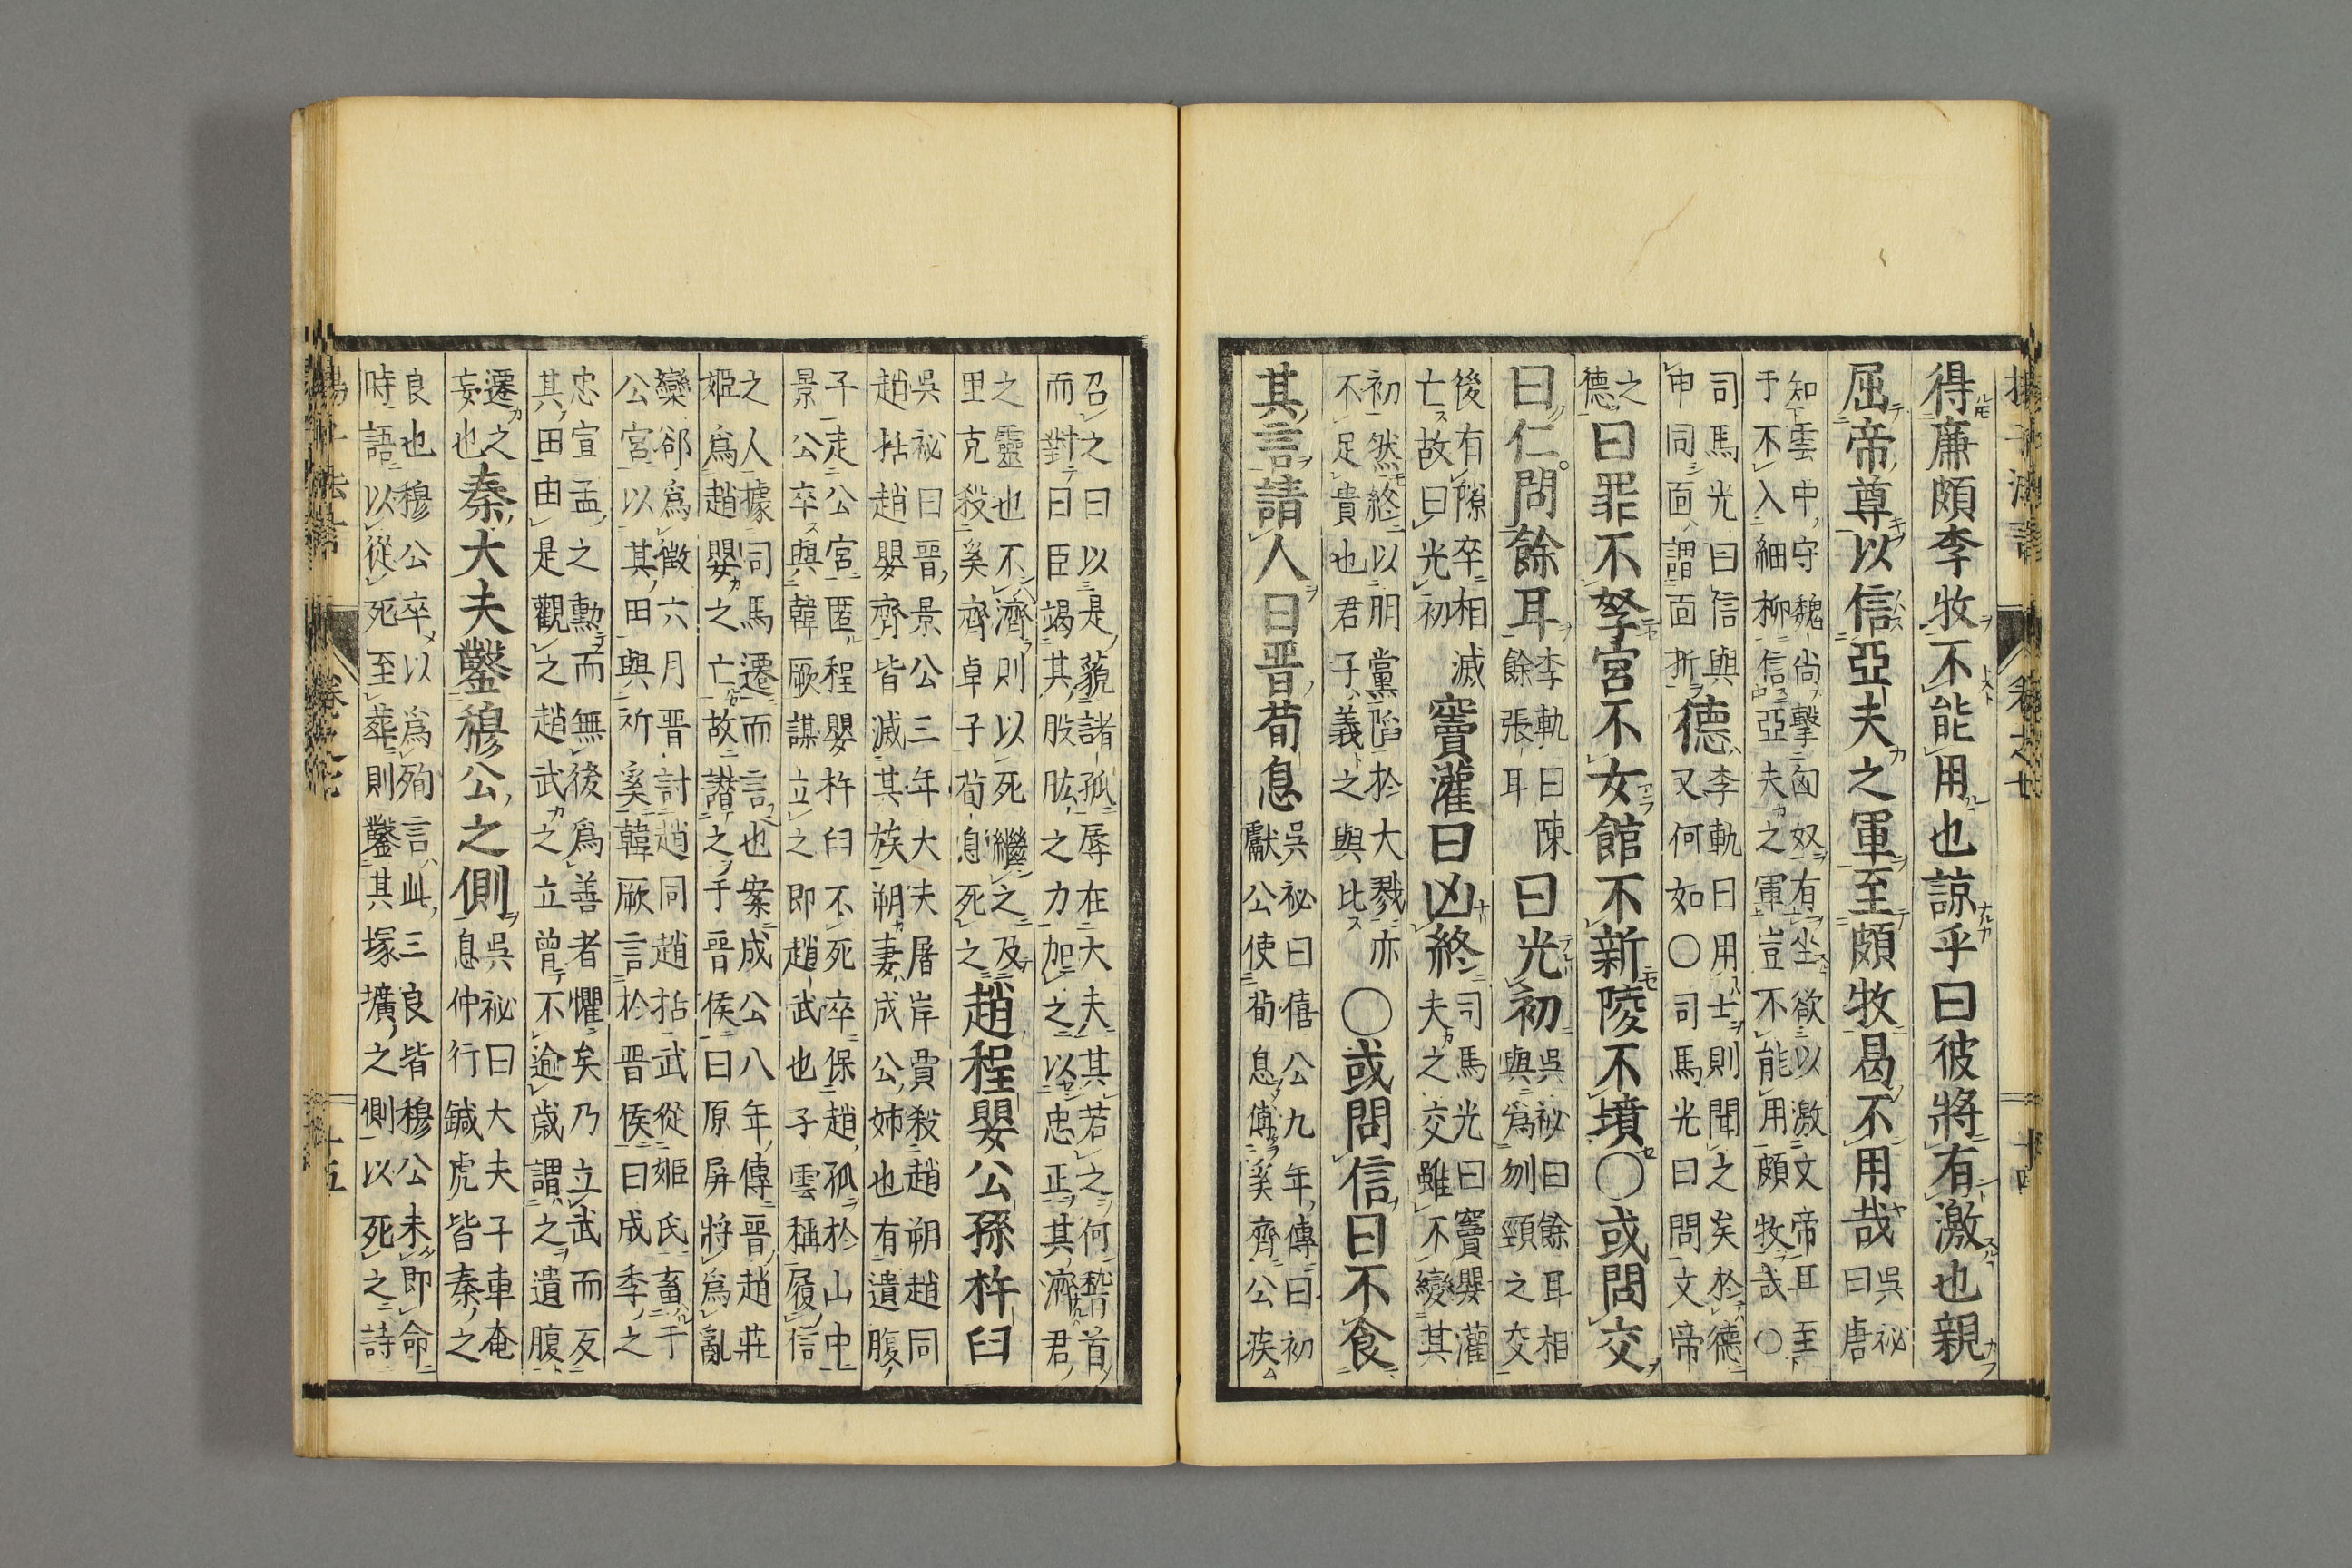 得廉頗李牧不能用也諒乎曰彼將有激也親
屈帝尊以信亞夫之軍至頗牧曷不用哉吳祕曰唐
知雲中守魏尚擊匈奴有坐欲以激文帝耳至
于不入細柳信亞夫之軍豈不能用頗牧哉〇
司馬光曰信與
申同面謂面折
德李軌曰用士則聞之矣於德
又何如〇司馬光曰問文帝
之德
曰罪不孥宮不女館不新陵不墳〇或問交
曰仁問餘耳李軌曰陳餘張耳
曰光初吳祕曰餘耳相
與爲刎頸之交
後有隙卒相滅
亡故曰光初
竇灌曰凶終司馬光曰竇嬰灌
夫之交雖不變其
初然終以朋黨陷於大戮亦
不足貴也君子義之與比
〇或問信曰不食
其言請人曰晋荀息吳祕曰僖公九年傳曰初
獻公使荀息傅奚齊公疾
召之曰以是藐諸孤辱在大夫其若之何稽首
而對曰臣竭其股肱之力加之以忠正其濟君
之靈也不濟則以死繼之及
里克殺奚齊卓子荀息死之
趙程嬰公孫杵臼
吳祕曰晋景公三年大夫屠岸賈殺趙朔趙同
趙括趙嬰齊皆滅其族朔妻成公姊也有遺腹
子走公宮匿程嬰杵臼不死卒保趙孤於山中
景公卒與韓厥謀立之即趙武也子雲稱履信
之人據司馬遷而言也案成公八年傳晋趙莊
姬爲趙嬰之亡故譖之于晋侯曰原屏將爲亂
欒郤爲徵六月晋討趙同趙括武從姬氏畜于
公宮以其田與祈奚韓厥言於晋侯曰成季之
忠宣孟之勳而無後爲善者懼矣乃立武而反
其田由是觀之趙武之立曾不逾歲謂之遺腹
遷之
妄也
秦大夫鑿穆公之側吳祕曰大夫子車奄
息仲行鍼虎皆秦之
良也穆公卒以爲殉言此三良皆穆公未即命
時語以從死至葬則鑿其塚壙之側以死之詩
十五